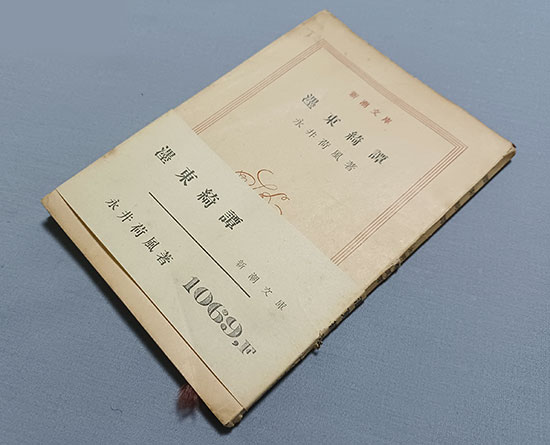 新潮文庫
濹東綺譚
永井荷風著
濹東綺譚
永井荷風著
新潮文庫
1069,F